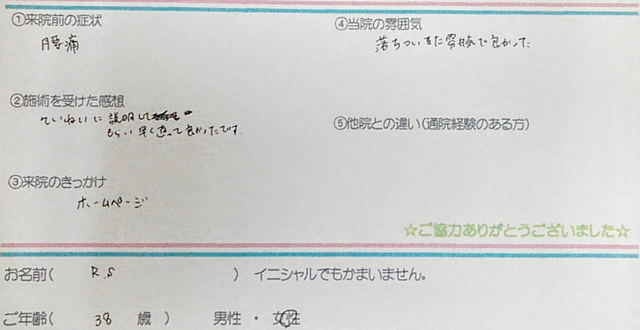 ①来院前の症状
腰痛
②施術を受けた感想
ていねいに説明して
もらい早く治って良かったです
③来院のきっかけ
ホームページ
④当院の雰囲気
落ちついた雰囲気で良かった
⑤他院との違い(通院経験のある方)
☆ご協力ありがとうございました☆
お名前( R.S ) イニシャルでもかまいません。
ご年齢( 38 歳 ) 男性 ・ 女性